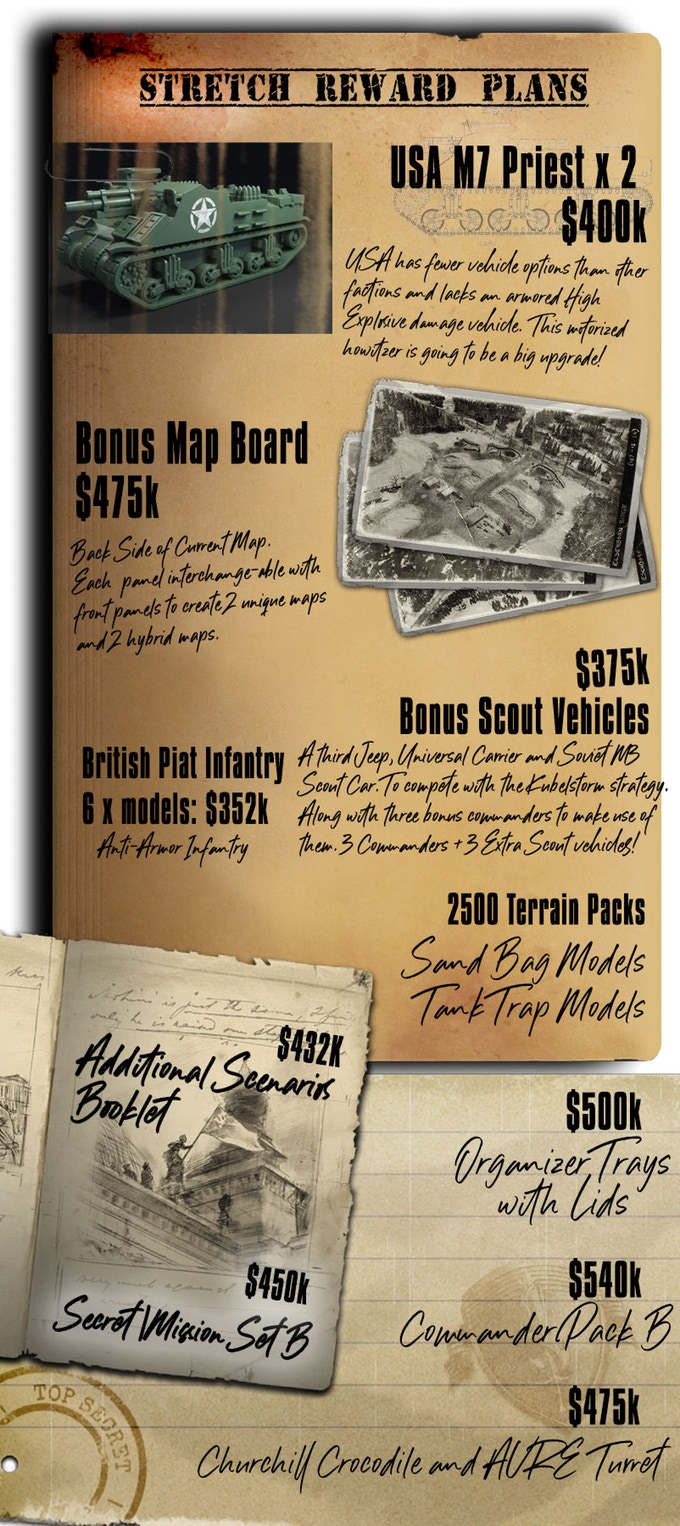 STRETCH REWARD PLANS
USA M7 Priest x 2
$400k
USA has fewer vehicle options than other
factions and lacks an armored High
Explosive damage vehicle. This motorized
howitzer is going to be a big upgrade!
Bonus Map Board
$475k
Back Side of Current Map.
Each panel interchange-able with
front panels to create 2 unique maps
and 2 hybrid maps.
$375k
Bonus Scout Vehicles
A third Jeep, Universal Carrier and Soviet MB
Scout Car. To compete with the Kubelstorm strategy.
Along with three bonus commanders to make use of
them. 3 Commanders + 3 Extra Scout vehicles!
British Piat Infantry
6 x models: $352k
Anti-Armor Infantry
2500 Terrain Packs
Sand Bag Models
Tank Trap Models
$432K
Additional Scenarios
Booklet
$450k
Secret Mission Set B
$500k
Organizer Trays
with Lids
$540k
Commander Pack B
$475k
Churchill Crocodile and AVRE Turret
TOP SECRET